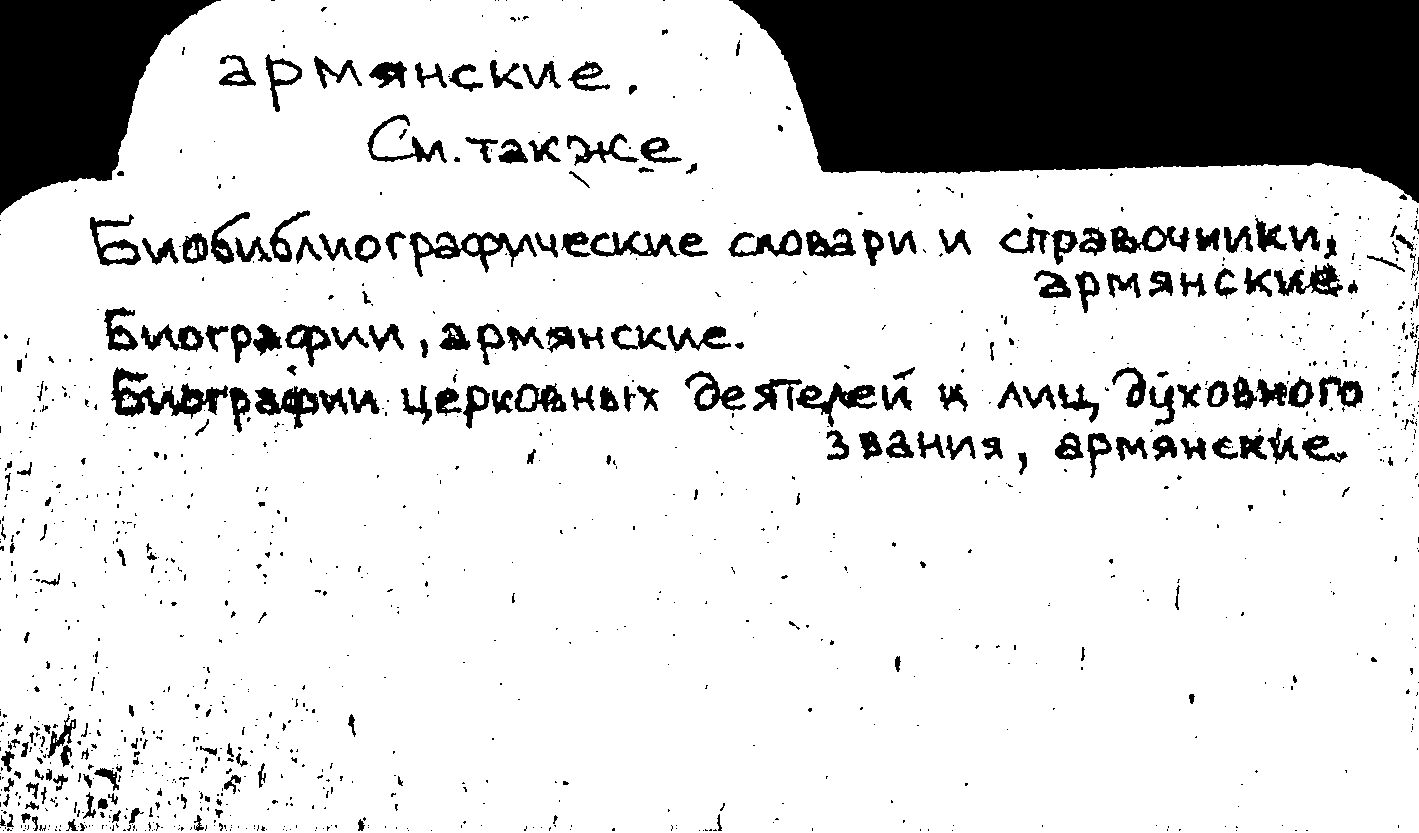 армянские.
См. также,
Биобиблиографические словари и справочники,
армянские.
Биографии, армянские.
Биографии церковных деятелей и лиц духовного
звания, армянские.